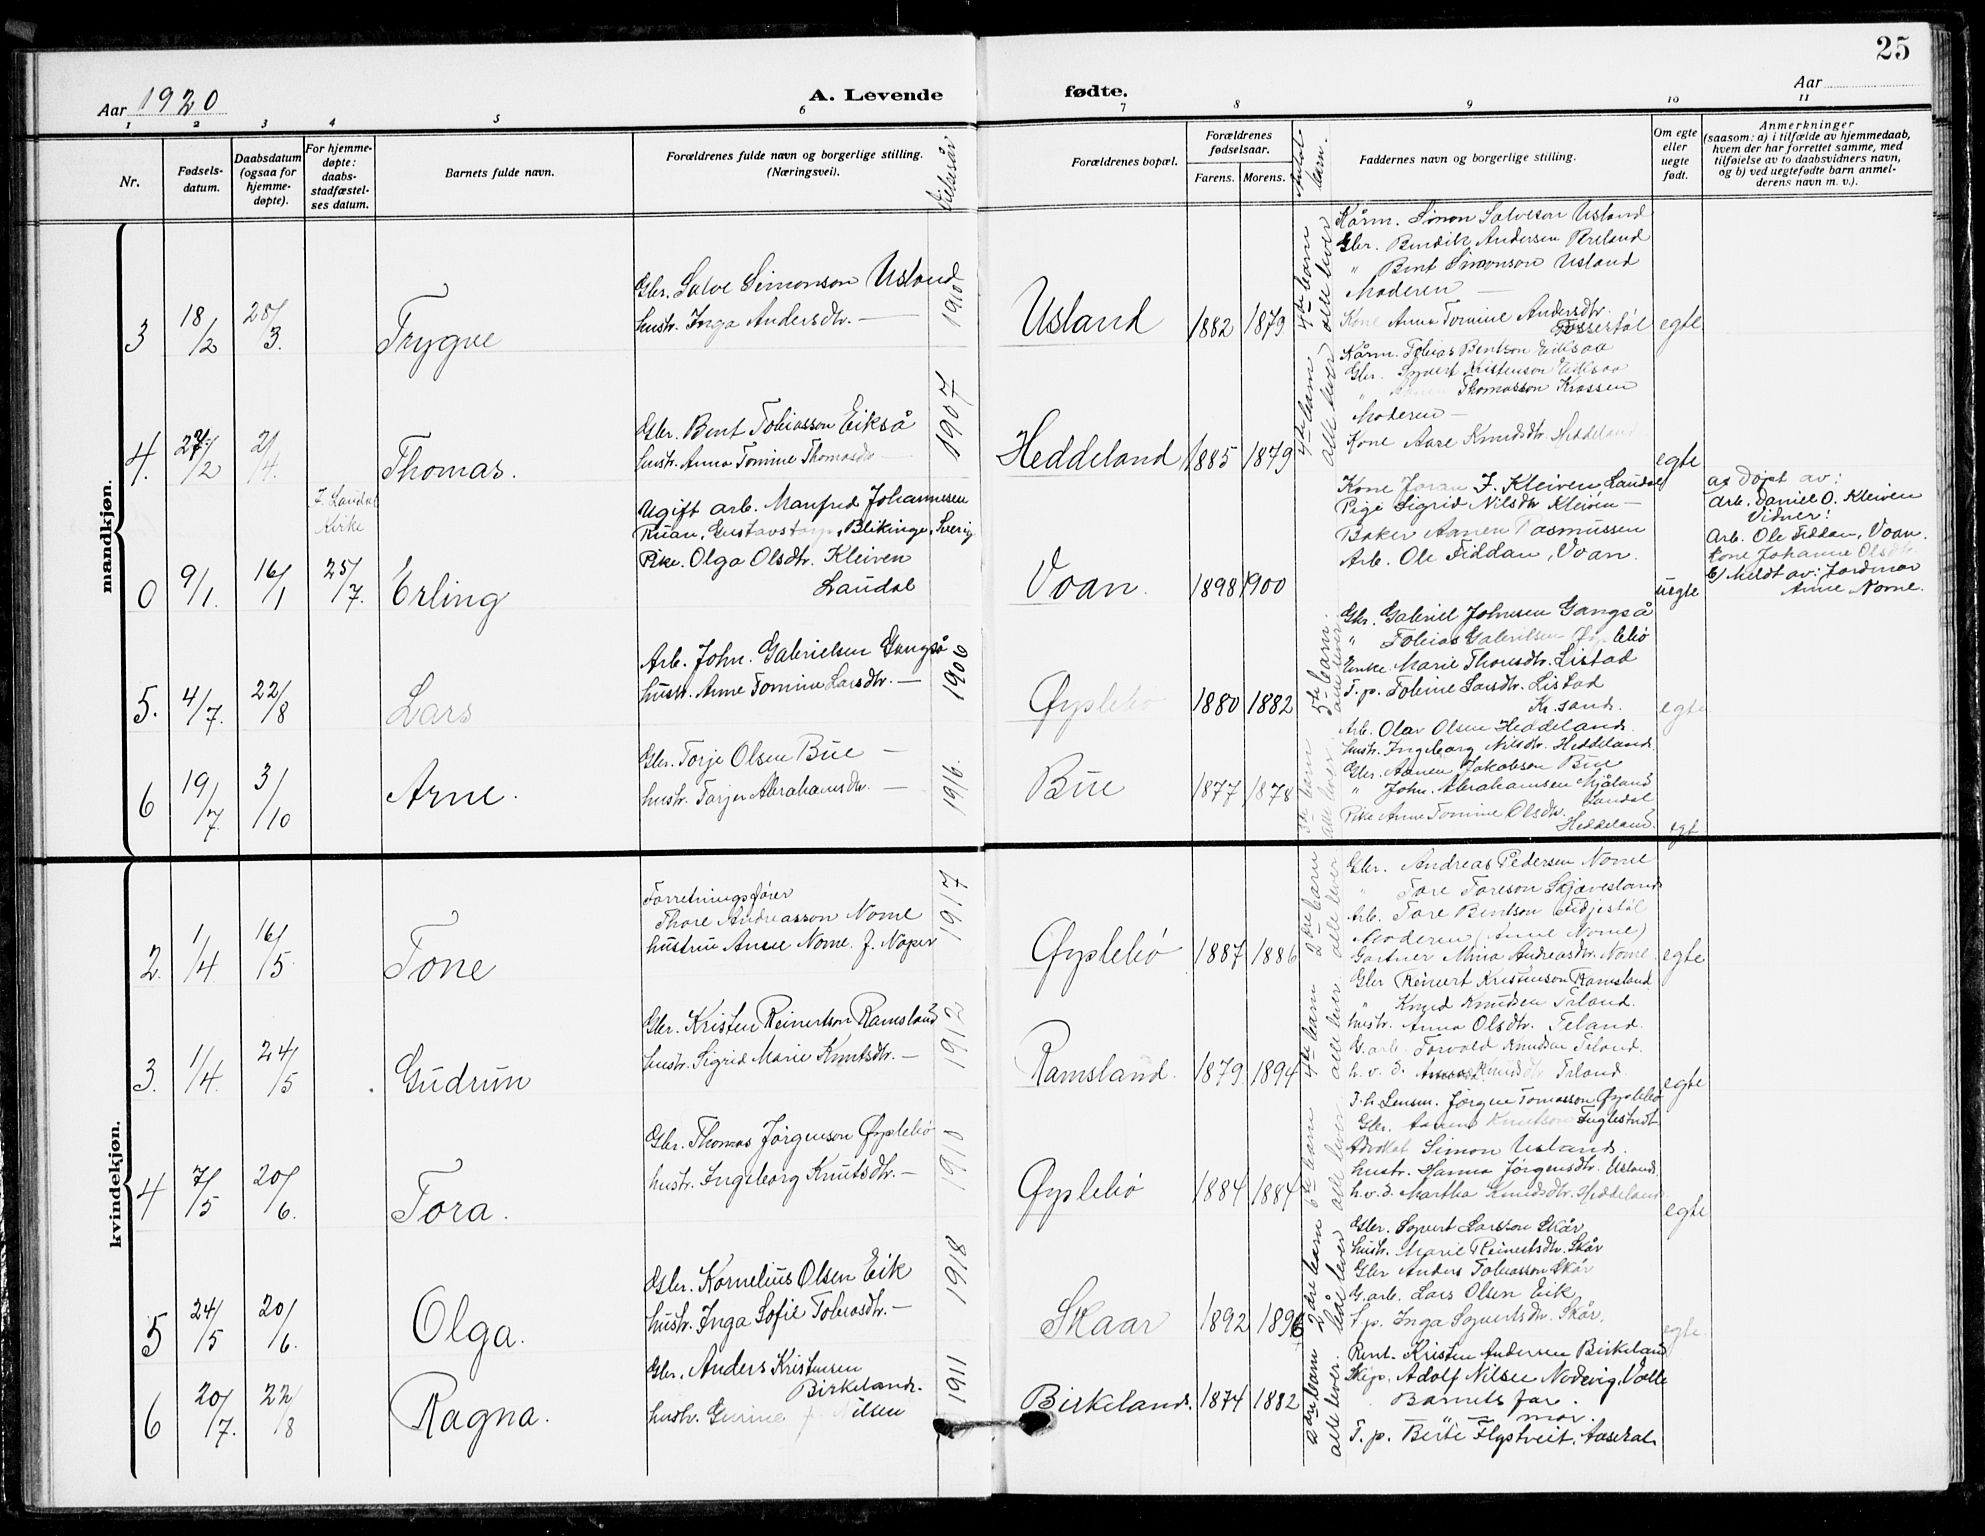 25
Aar 1920
A. Levende
fødte.
Aar
1 2 3 4 5 6 7 8 9 10 11
Nr.
Fødsels-
datum.
Daabsdatum
(ogsaa for
hjemme-
døpte).
For hjemme-
døpte:
daabs-
stadfæstel-
ses datum.
Barnets fulde navn.
Forældrenes fulde navn og borgerlige stilling.
(Næringsvei).
Vielsesår
Forældrenes bopæl.
Forældrenes
fødselsaar.
Farens. Morens.
Antal
barn.
Faddernes navn og borgerlige stilling.
Om egte
eller
uegte
født.
Anmerkninger
(saasom: a) i tilfælde av hjemmedaab,
hvem der har forrettet samme, med
tilføielse av to daabsvidners navn,
og b) ved uegtefødte barn anmel-
derens navn m. v.).
mandkjøn.
3 18/2 28/3. Trygve
Gbr. Salve Simonson Usland
hustr. Inga Andersdtr. —
1910
Usland 1882 1879
4de barn
alle lever
Kårm. Simon Salveson Usland
Gbr. Bendik Andersen Breland
" Bent Simonson Usland
Moderen —
Kone Anna Tomine Andersdtr.
Fossestøl
egte
4. 27/2 2/4. Thomas.
Gbr. Bent Tobiasson Eikså
hustr. Anna Tomine Thomasdtr —
1907
Heddeland 1885 1879
4de barn
alle lever
Kårm. Tobias Bentson Eiksaa
Gbr. Syvert Kristenson Eiksaa
" Thomasson Krossen
Moderen —
Kone Aase Knudsdtr Heddeland
egte
0 9/1. 16/1
I Laudal
Kirke
25/7. Erling
Ugift arb. Manfred Johannesen
Ruan, Gustavstorp, Blikinge, Sverig
Pike. Olga Olsdtr. Kleiven
Laudal
Voan. 1898 1900
Kone Joran J. Kleiven, Laudal
Pige Sigrid Nilsdtr Kleiven —
Baker Aanen Rasmussen
Arb. Ole Fiddan, Voan.
uegte
a) Døpt av:
Arb. Daniel O. Kleiven
Vidner:
Arb. Ole Fiddan, Voan.
Kone Johanne Olsdtr
b) Meldt av: Jordmor
Anne Nome.
5. 4/7. 22/8 Lars
Arb. John. Gabrielsen Gangså
hustr. Anne Tomine Larsdtr. —
1906
Øyslebø 1880 1882
5te barn.
alle lever
Gbr. Gabriel Johnsen Gangså
" Tobias Gabrielsen Øyslebø
Enke. Marie Thorsdtr. Listad
T. p. Tobine Larsdtr. Listad
Kr. sand.
egte
6 19/7. 3/10 Arne.
Gbr. Torje Olsen Bue —
hustr. Torjer Abrahamsdtr. —
1916.
Bue 1877 1878
3de barn
alle lever
Arb. Olav Olsen Heddeland.
hustr. Ingeborg Nilsdtr. Heddeland.
Gbr. Aanen Jakobsen Bue
" John. Abrahamsen Mjåland
Laudal
Pike Anne Tomine Olsdtr.
Heddeland.
egt
kvindekjøn.
2. 1/4. 16/5. Tone
Forretningsfører
Thore Andreasson Nome
hustru Anne Nome. f. Noper
1917
Øyslebø 1887 1886
2dre barn
alle lever
Gbr. Andreas Pedersen Nome
" Tore Toreson Skjævesland.
Arb. Tore Bentson Fidjestøl
Moderen (Anne Nome)
Gartner Mina Andreasdtr. Nome.
egte
3. 1/4. 24/5 Gudrun
Gbr. Kristen Reinertson Ramsland
hustr. Sigrid Marie Knutsdtr. —
1912
Ramsland. 1879 1894
4de barn
alle lever.
Gbr Reinert Kristenson Ramsland.
" Knud Knudsen Tåland.
hustr. Anna Olsdtr. Tåland.
G. arb. Torvald Knudsen Tåland.
h. v. d. Knudsdtr Tåland.
egte
4 7/5 20/6. Tora.
Gbr. Thomas Jørgenson Øyslebø
hustr. Ingeborg Knutsdtr. —
1910
Øyslebø 1884 1884
6te barn
alle lever
F. h. Lensm. Jørgen Tomasson Øyslebø
Gbr. Aanen Knutson Fuglestvedt.
Advokat Simon Usland.
hustr. Hanna Jørgensdtr. Usland.
h.v.d. Martha Knudsdtr. Heddeland.
egte
5 24/5 20/6. Olga.
Gbr. Kornelius Olsen Eik
hustr. Inga Sofie Tobiasdtr. —
1918
Skaar 1892 1896
2dre barn
både lever
Gbr. Syvert Larsson Skår
hustr. Marie Reinertsdtr. Skår
Gbr Anders Tobiasson Skår
G. arb. Lars Olsen Eik.
T. p. Inga Syvertsdtr. Skår.
egte.
6 20/7. 22/8 Ragna.
Gbr. Anders Kristensen
Birkeland.
hustr. Gurine f. Nilsen
1911
Birkeland. 1874 1882
2dre barn
alle lever.
Rent. Kristen Andersen Birkeland
Skip. Adolf Nilsen Nodevig, Valle
Barnets far.
" mor.
T. p. Berte Flystveit, Aaseral.